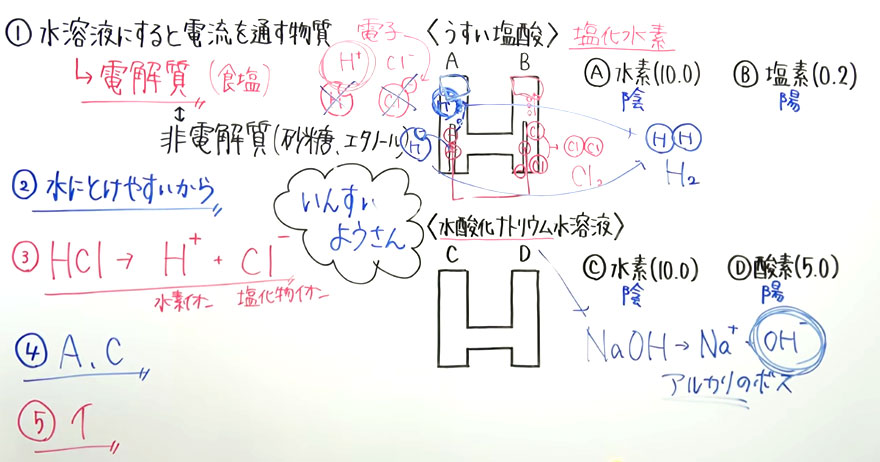 ① 水溶液にすると電流を通す物質
↳ 電解質 (食塩)
↕
非電解質(砂糖、エタノール)
電子
H⁺ Cl⁻
② 水にとけやすいから
いんすい
ようさん
③ HCl → H⁺ + Cl⁻
水素イオン 塩化物イオン
④ A、C
⑤ イ
〈うすい塩酸〉 塩化水素
A B
Ⓐ 水素(10.0) Ⓑ 塩素(0.2)
陰 陽
H⁺
H⁺
Cl Cl
Cl₂
H H
H₂
〈水酸化ナトリウム水溶液〉
C D
Ⓒ 水素(10.0) Ⓓ 酸素(5.0)
陰 陽
NaOH → Na⁺ OH⁻
アルカリのボス